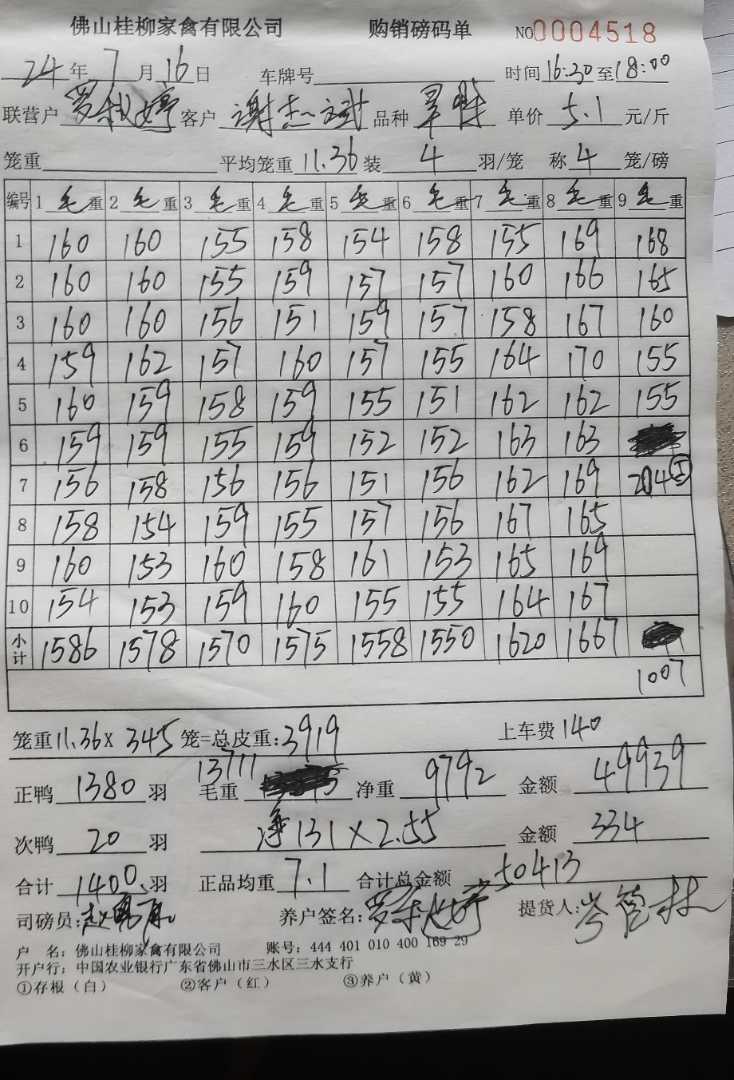 佛山桂柳家禽有限公司 购销磅码单 NO0004518
24年7月16日 车牌号 时间16:30至18:00
联营户 客户 谢杰斌 品种 单价 5.1 元/斤
笼重 平均笼重 11.36 装 4 羽/笼 称 4 笼/磅
编号 1 毛重 2 毛重 3 毛重 4 毛重 5 毛重 6 毛重 7 毛重 8 毛重 9 毛重
1 160 160 155 158 154 158 155 169 168
2 160 160 155 159 157 157 160 166 165
3 160 160 156 151 159 157 158 167 160
4 159 162 157 160 157 155 164 170 155
5 160 159 158 159 155 151 162 162 155
6 159 159 155 159 152 152 163 163
7 156 158 156 156 151 156 162 169 204
8 158 154 159 155 157 156 167 165
9 160 153 160 158 161 153 165 169
10 154 153 159 160 155 155 164 167
小计 1586 1578 1570 1575 1558 1550 1620 1667
1007
笼重11.36X 345 笼=总皮重:3919 上车费 140
正鸭 1380 羽 毛重 13711 净重 9792 金额 49939
次鸭 20 羽 净131×2.55 金额 334
合计 1400 羽 正品均重 7.1 合计总金额 50413
司磅员: 养户签名: 提货人:
户 名：佛山桂柳家禽有限公司 账号：444 401 010 400 169 29
开户行：中国农业银行广东省佛山市三水区三水支行
①存根（白） ②客户（红） ③养户（黄）